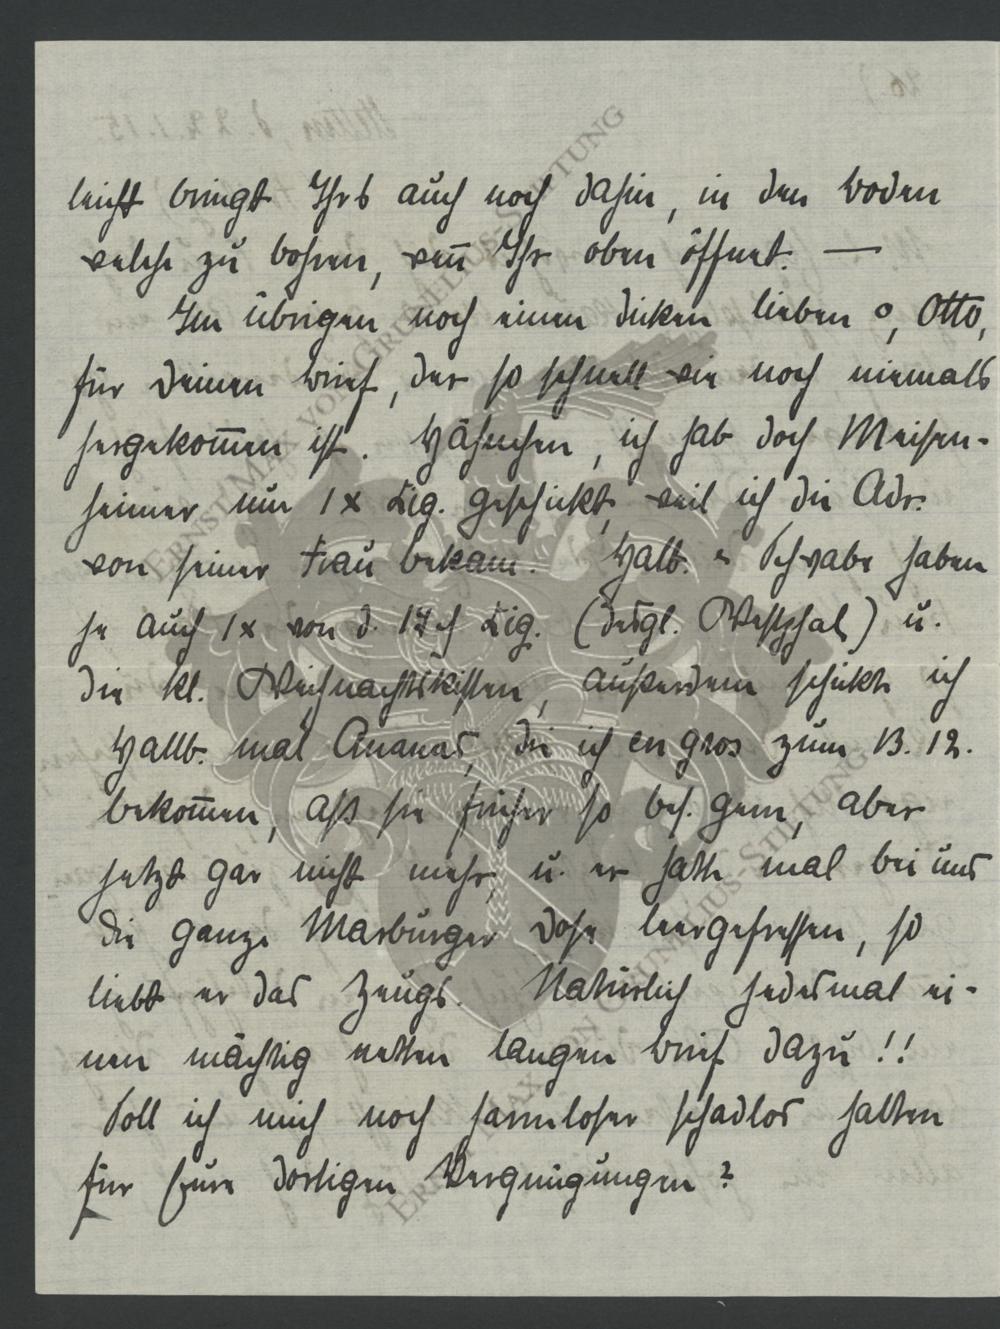 leicht bringt Ihrs auch noch dahin, in den Boden
welche zu bohren, wen̄ Ihr oben öffnet. —
Im übrigen noch einen dicken lieben o, Otto,
für Deinen Brief, der so schnell wie noch niemals
hergekom̄en ist. Hähnchen, ich hab doch Meisen-
heimer nur 1 x Zig. geschickt, weil ich die Adr.
von seiner Frau bekam. Hallb. u Schwabe haben
je auch 1 x von d. Zig. (desgl. Westphal) u.
die kl. Weihnachtskisten, außerdem schickte ich
Hallb. mal Ananas, die ich en gros zum 13. 12.
bekom̄en, aß sie früher so bes. gern, aber
jetzt gar nicht mehr, u. er hatte mal bei uns
die ganze Marburger Dose leergefressen, so
liebt er das Zeugs. Natürlich jedesmal ei-
nen mächtig netten langen Brief dazu!!
Soll ich mich noch harmloser schadlos halten
für Eure dortigen Vergnügungen?
Stettin, d. 22.1.15.
ERNST MAX VON GRUNELIUS-STIFTUNG
ERNST MAX VON GRUNELIUS-STIFTUNG